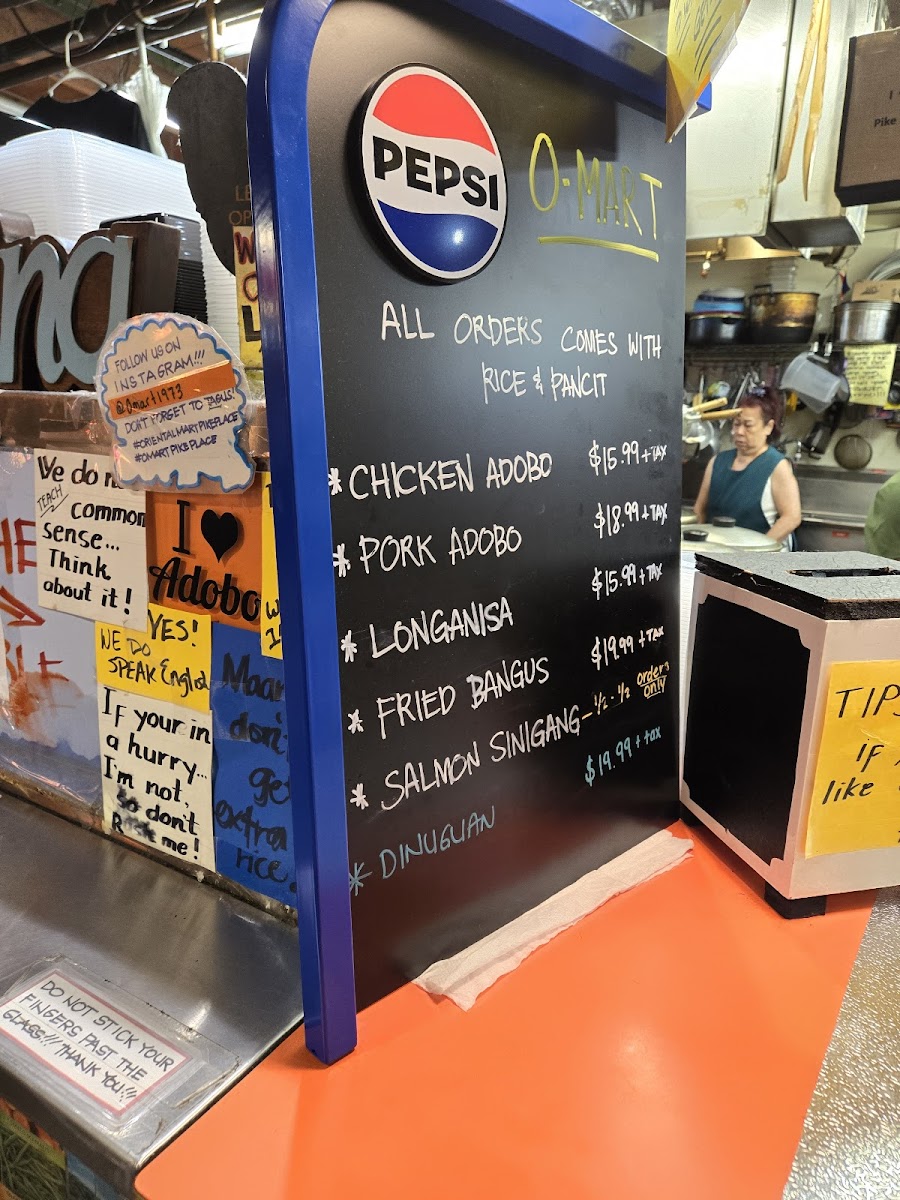 PEPSI
O-MART
ALL ORDERS COMES WITH
RICE & PANCIT
* CHICKEN ADOBO $15.99 + TAX
* PORK ADOBO $18.99 + TAX
* LONGANISA $15.99 + TAX
* FRIED BANGUS $19.99 + TAX
* SALMON SINIGANG - 1/2 - 1/2 orders only
* DINUGUAN $19.99 + tax
FOLLOW US ON
INSTAGRAM!!!
@Omart1973
DON'T FORGET TO TAG US!
#ORIENTALMARTPIKEPLACE
#OMARTPIKEPLACE
We do
TEACH
common
sense...
Think
about it!
I ♥
Adobo
YES!
WE DO
SPEAK English
IF your in
a hurry...
I'm not,
So don't
me!
don't
extra
rice.
DO NOT STICK YOUR
FINGERS PAST THE
GLASS!!! THANK YOU!!!
TIPS
IF
like
I
Pike